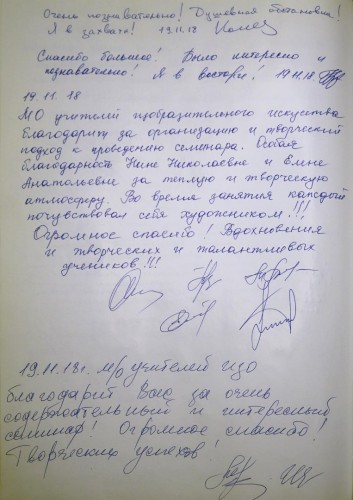 Очень познавательно! Душевная обстановка!
Я в захвате! 19.11.18
Спасибо большое! Было интересно и
познавательно! Я в восторге! 19.11.18
19.11.18
МО учителей изобразительного искусства
благодарит за организацию и творческий
подход к проведению семинара. Особая
благодарность Нине Николаевне и Елене
Анатольевне за теплую и творческую
атмосферу. Во время занятия каждый
почувствовал себя художником!!!
Огромное спасибо! Вдохновения
и творческих и талантливых
учеников!!!
19.11.18г. м/о учителей изо
благодарит Вас за очень
содержательный и интересный
семинар! Огромное спасибо!
Творческих успехов!